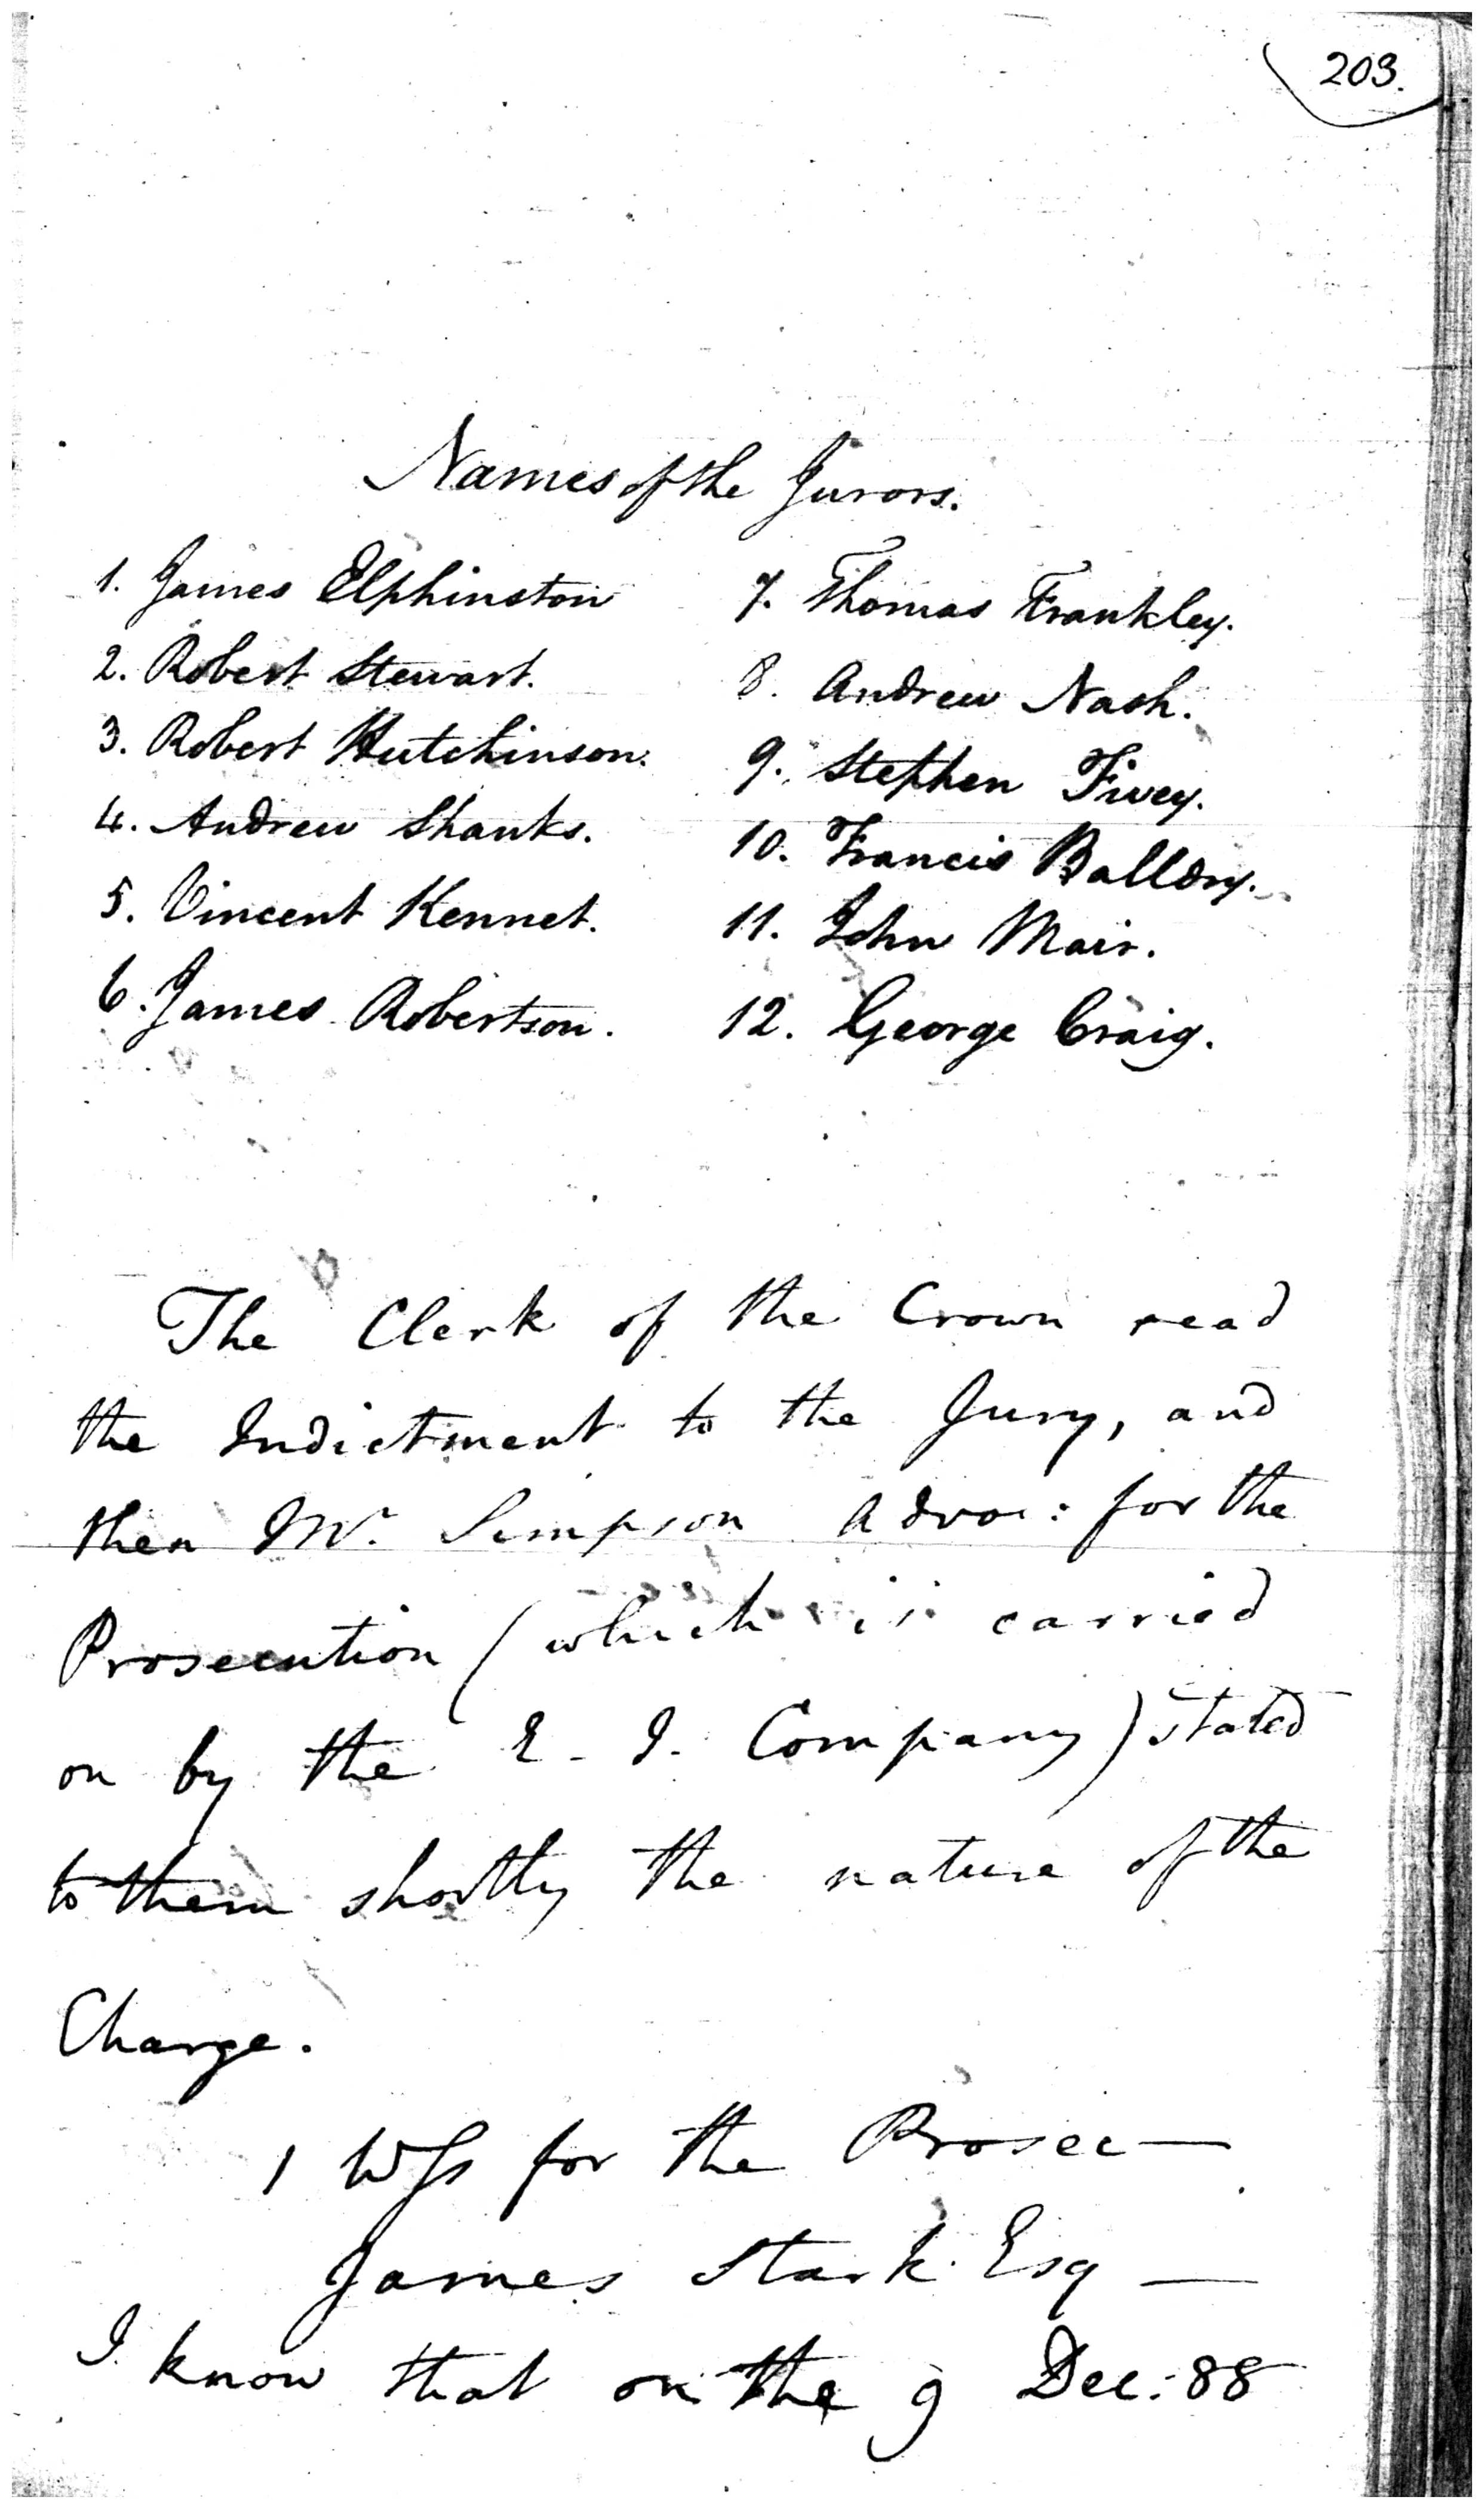 203.
Names of the Jurors.
1. James Elphinston
2. Robert Stewart.
3. Robert Hutchinson.
4. Andrew Shanks.
5. Vincent Kennet.
6. James Robertson.
7. Thomas Frankley.
8. Andrew Nash.
9. Stephen Fivey.
10. Francis Balldry.
11. John Mair.
12. George Craig.
The Clerk of the Crown read
the Indictment to the Jury, and
then Mr. Simpson Advoc: for the
Prosecution (which is carried
on by the E. I. Company) stated
to them shortly the nature of the
Charge.
1 Wss for the Prosec—
James Stark Esq —
I know that on the 9 Dec: 88